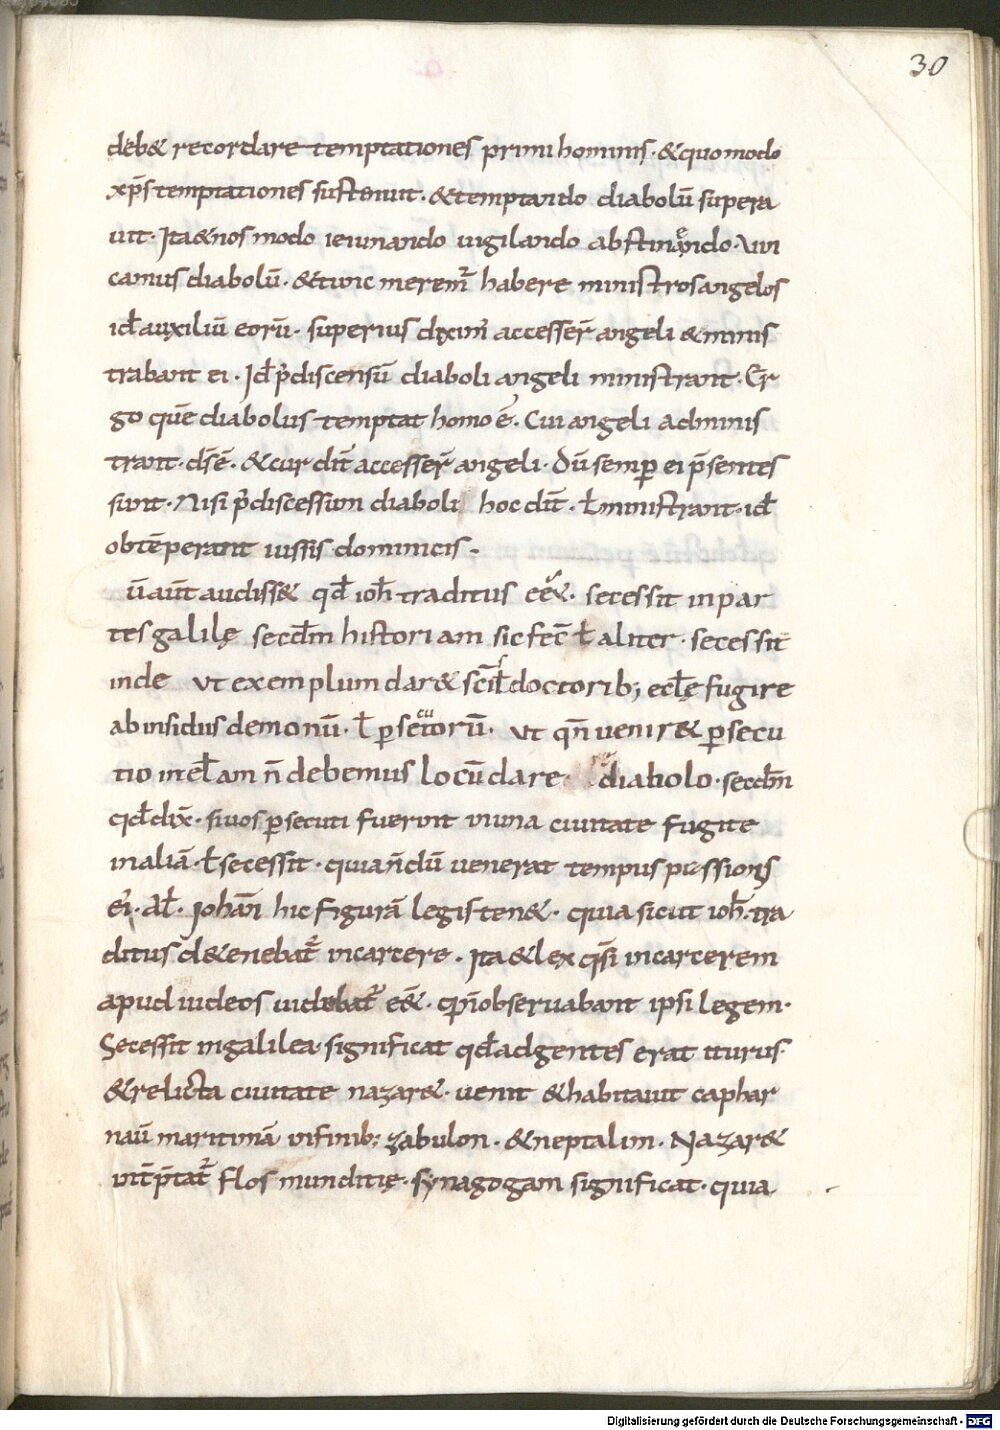 30
deb& recordare temptationes primi hominis · & quomodo
xp̄s temptationes sustinuit · & temptando diabolū supera
uit · Ita & nos modo ieiunando uigilando abstinendo · Vin
camus diabolū · & tunc merem̄ habere ministros angelos
id̄ auxiliū eorū · superius diximꝰ accesser̄ angeli & minis
trabant ei · Id̄ p̄ discensū diaboli angeli ministrant · Er
go quē diabolus temptat homo ē · Cui angeli adminis
trant · d̄s ē · & cur dn̄t accesser̄ angeli · Dū semꝑ ei p̄sentes
sunt · Nisi p̄ discession diaboli hoc dn̄t · ł ministrant · id̄
obtēperant iussis dominicis ·
ū aūt audiss& qd̄ ioh̄ traditus eē& · secessit in par
tes galilę secdm̄ historiam sic fec̄ ł aliter · secessit
inde ut exemplum dar& scīł doctorib; ecłę fugire
ab insidiis demonū · ł ꝑsecutorū · ut qn̄ uenir& ꝑsecu
tio in ecł am n̄ debemus locū dare diabolo · secdm̄
qd̄ dix̄ · si uos ꝑsecuti fuerint in una ciuitate fugite
in aliā · ł secessit · quia n̄dū uenerat tempus passionis
eiꝰ · Al̄ · Johan̄ hic figurā legis ten& · quia sicut ioh̄ · tra
ditus d&enebat᷑ in carcere · Ita & lex qsī in carcerem
apud iudeos uidebat᷑ eē& · qn̄ observabant ipsi legem ·
Secessit in galilea · significat qd̄ ad gentes erat iturus ·
& relicta ciuitate nazar& · uenit & habitauit caphar
naū maritimā in finib; zabulon · & neptalim · Nazar&
int̄p̄tat᷑ flos munditię · synagogam significat · quia
Digitalisierung gefördert durch die Deutsche Forschungsgemeinschaft - DFG